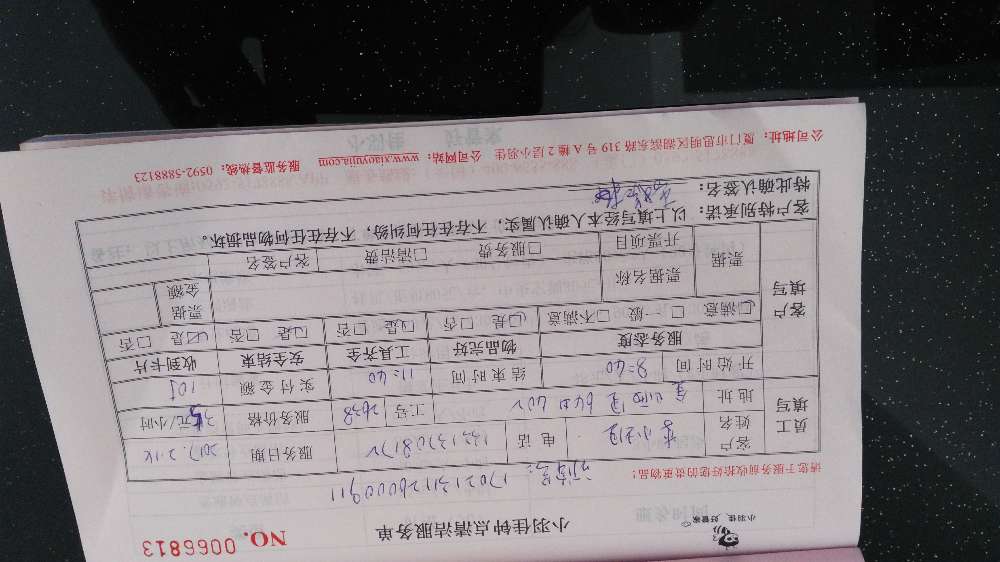 小羽佳 好管家
小羽佳钟点清洁服务单
NO. 0066813
17021311126000911
请您于服务前收拾好您的贵重物品!
员工填写
客户姓名
电话
服务日期
地址
工号 2638
服务价格 35元/小时
开始时间 8:40
结束时间 11:40
实付金额 105
客户填写
服务态度 物品完好 工具齐全 安全结束 收到卡片
☑满意 □一般 □不满意 ☑是 □否 ☑是 □否 ☑是 □否 ☑是 □否
票据
票据名称
票据金额
开票项目 □服务费 □清洁费 客户签名
客户特别承诺:以上填写经本人确认属实,不存在任何纠纷,不存在任何物品损坏。
特此确认签名:
公司地址:厦门市思明区湖滨东路319号A幢2层小羽佳 公司网站:www.xiaoyujia.com 服务监督热线:0592-5888123